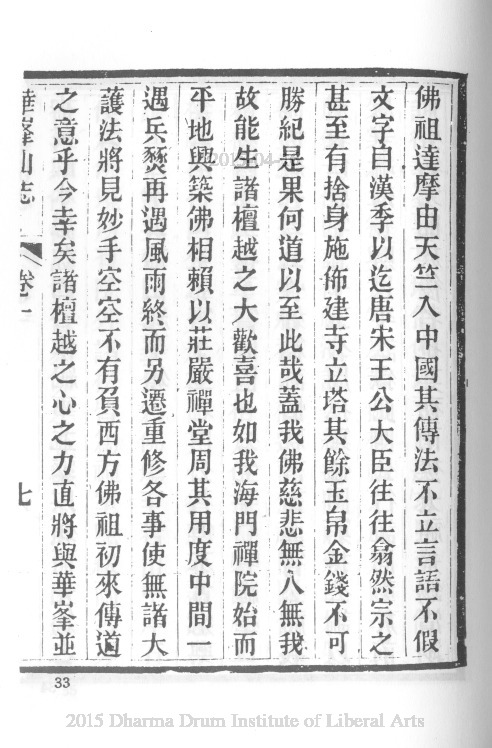 佛祖達摩由天竺入中國其傳法不立言語不假
文字自漢季以迄唐宋王公大臣往往翕然宗之
甚至有捨身施佈建寺立塔其餘玉帛金錢不可
勝紀是果何道以至此哉蓋我佛慈悲無人無我
故能生諸檀越之大歡喜也如我海門禪院始而
平地興築佛相賴以莊嚴禪堂周其用度中間一
遇兵燹再遇風雨終而另遷重修各事使無諸大
護法將見妙手空空不有負西方佛祖初來傳道
之意乎今幸矣諸檀越之心之力直將與華峯並
華峯山志 卷一 七
33
2015 Dharma Drum Institute of Liberal Arts